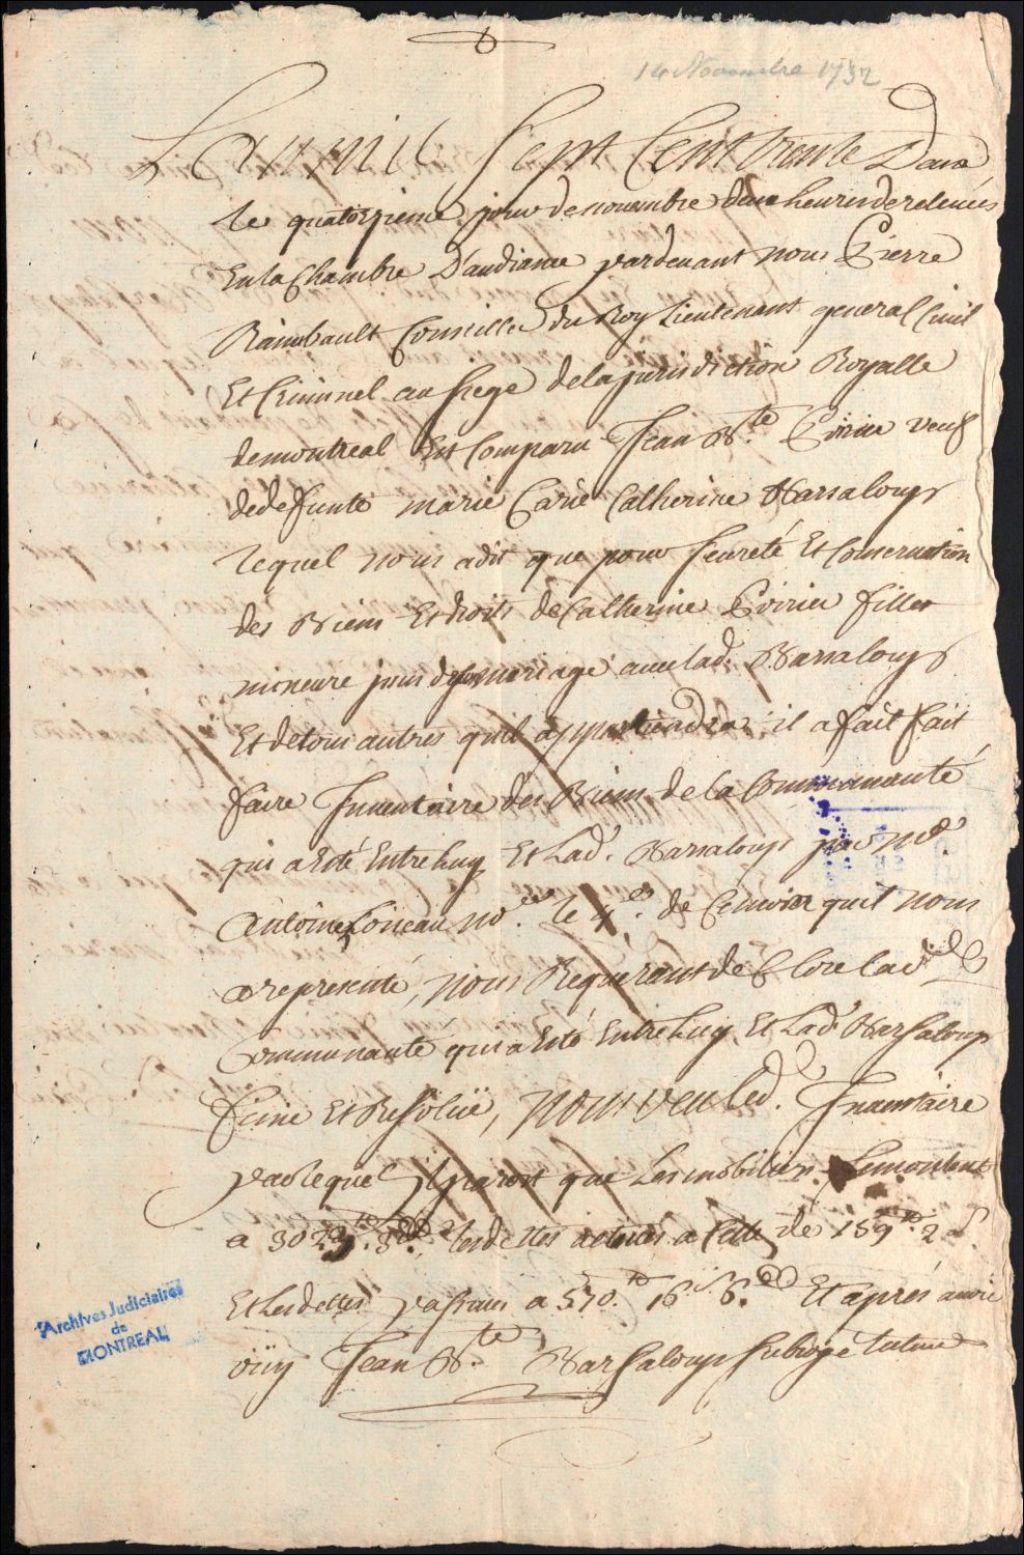 14 Novembre 1732
Lan mil Sept Cent trente Deux
le quatorzieme jour de novembre deux heures de relevées
En la Chambre D'audiance pardevant nous Pierre
Raimbault Conseiller du Roy Lieutenant general Civil
Et Criminel au siege de la jurisdiction Royalle
de montreal Est Comparu Jean Bte. Poirier veuf
de defunte marie Catherine Barsaloup
lequel nous a dit que pour seureté Et Conservation
des Biens Et droits de Catherine Poirier fille
mineure jssue de son mariage avec lad. Barsaloup
Et de tous autres quil appartiendra, il a fait fait
faire Inventaire des Biens de la Communauté
qui a Esté Entre luy Et Lad. Barsaloup par Me.
Antoine Loiseau Nore. le 4e. de Ce mois quil nous
a representé, Nous Requerant de Clore lad.
Communauté qui a Esté Entre Luy Et Lad. Barsaloup
finie Et Resolüe, Nous veu led. Inventaire
par lequel il paroist que Les mobiliers Se montent
a 302 les dettes actives a Celle de 159tt. 2 s
Et Les dettes passives a 570tt. 16s. 6d. Et aprés avoir
oüy Jean Bte. Barsaloup subrogé tuteur
Archives Judiciaires
de
MONTREAL